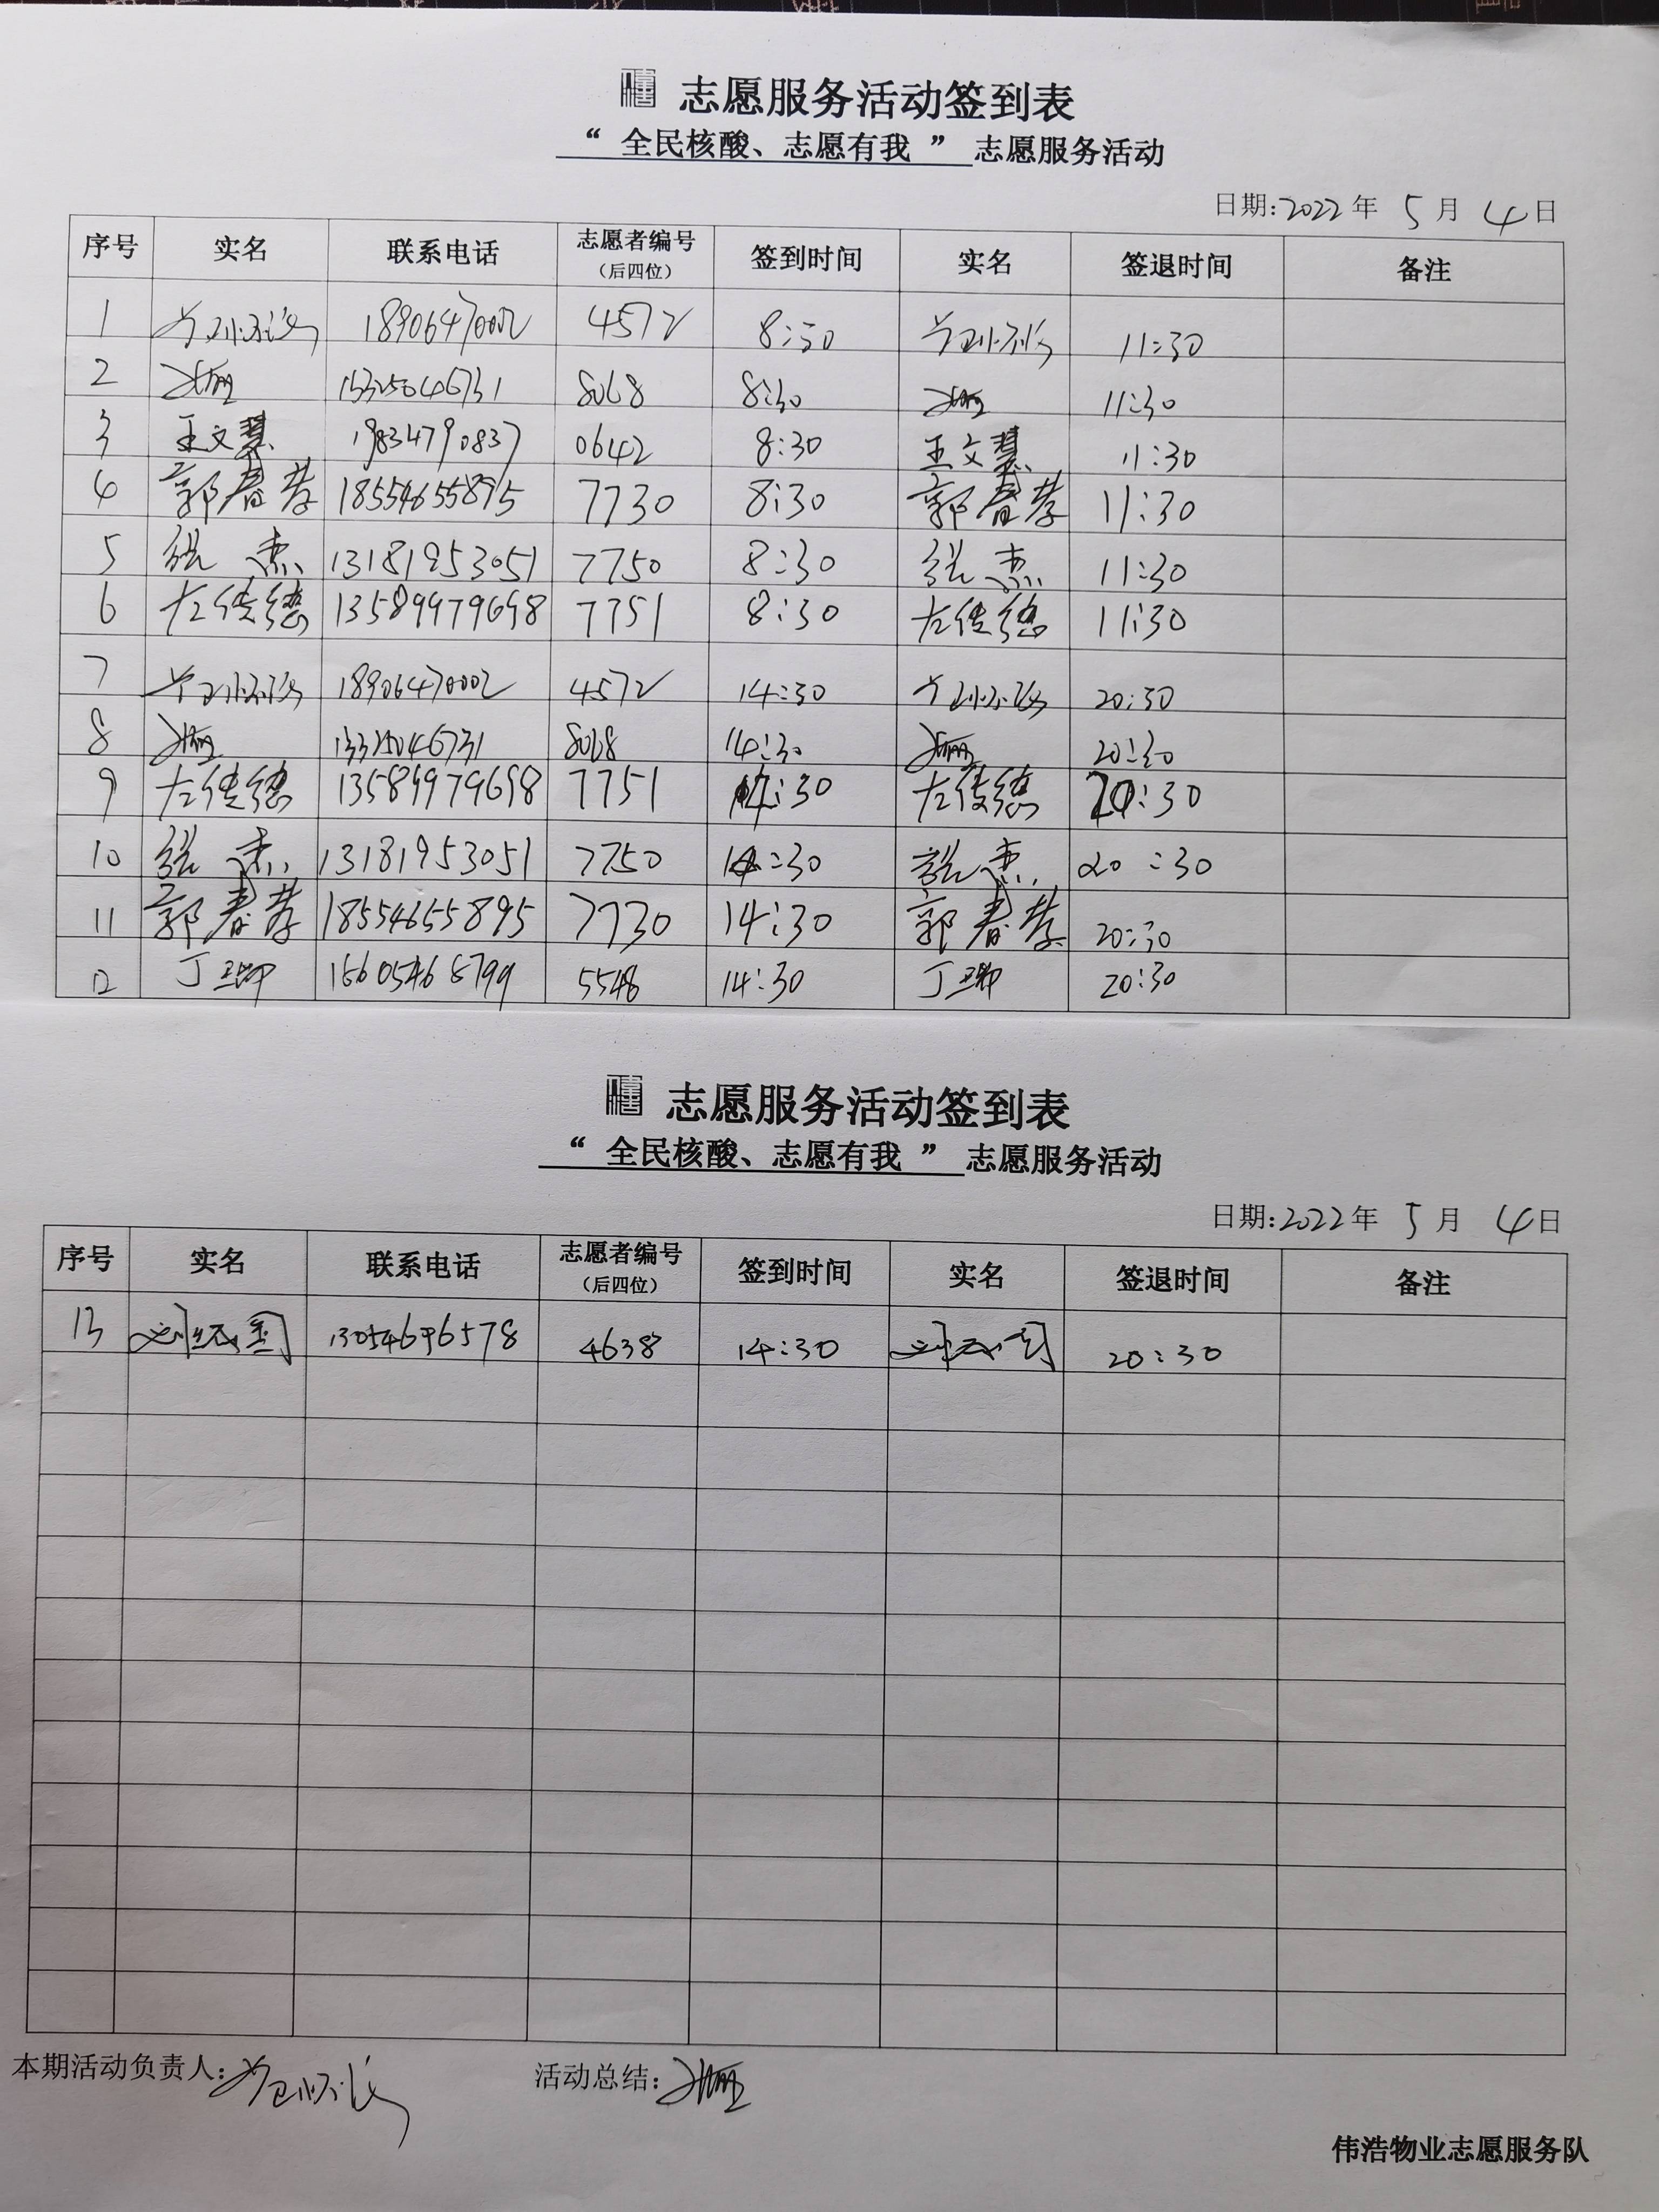 志愿服务活动签到表
“ 全民核酸、志愿有我 ” 志愿服务活动
日期:2022年 5月 4日
序号 实名 联系电话 志愿者编号(后四位) 签到时间 实名 签退时间 备注
1 18906470002 4572 8:30 11:30
2 15325046731 8068 8:30 11:30
3 王文慧 19834790837 0642 8:30 王文慧 11:30
4 郭春荣 18554655895 7730 8:30 郭春荣 11:30
5 张杰 13181953051 7750 8:30 张杰 11:30
6 左传德 13589979698 7751 8:30 左传德 11:30
7 18906470002 4572 14:30 20:30
8 8068 14:30 20:30
9 左传德 13589979698 7751 14:30 左传德 20:30
10 张杰 13181953051 7750 14:30 张杰 20:30
11 郭春荣 18554655895 7730 14:30 郭春荣 20:30
12 丁 5548 14:30 丁 20:30
志愿服务活动签到表
“ 全民核酸、志愿有我 ” 志愿服务活动
日期:2022年 5月 4日
序号 实名 联系电话 志愿者编号(后四位) 签到时间 实名 签退时间 备注
13 13054696578 4638 14:30 20:30
本期活动负责人: 活动总结:
伟浩物业志愿服务队